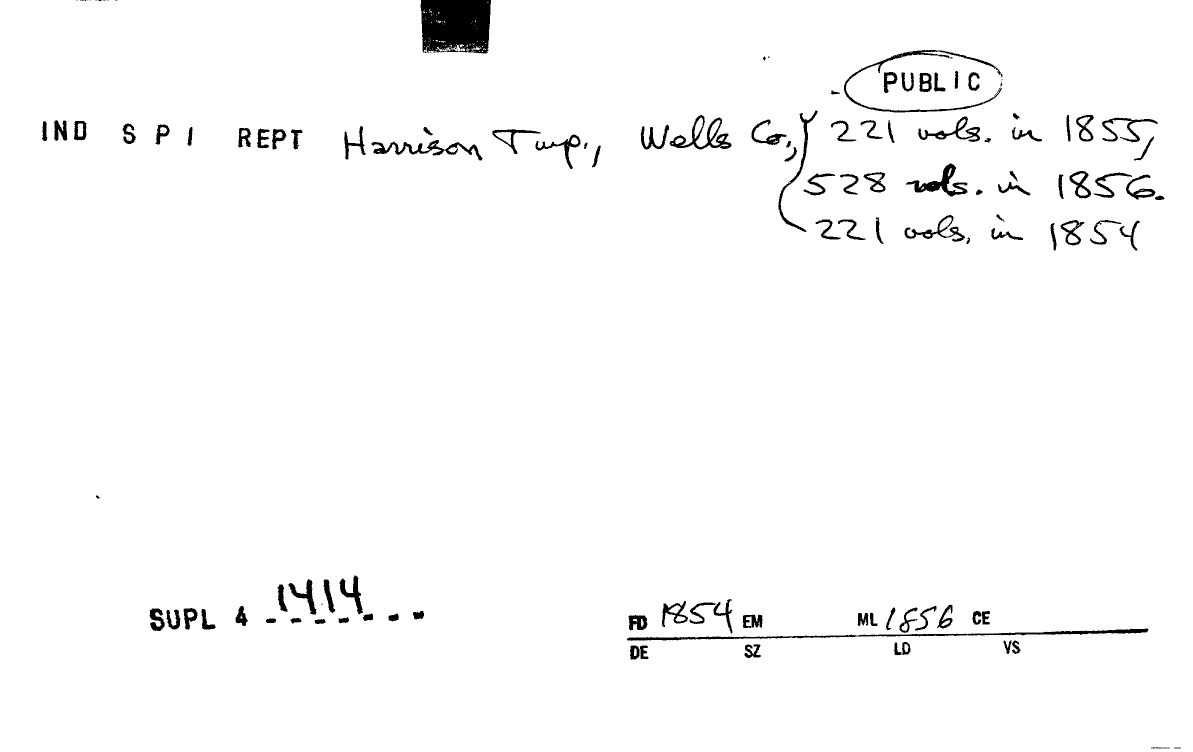 PUBLIC
IND S P I REPT Harrison Twp., Wells Co., 221 vols. in 1855,
528 vols. in 1856.
221 vols. in 1854
SUPL 4 1414
FD 1854 EM ML 1856 CE
DE SZ LD VS